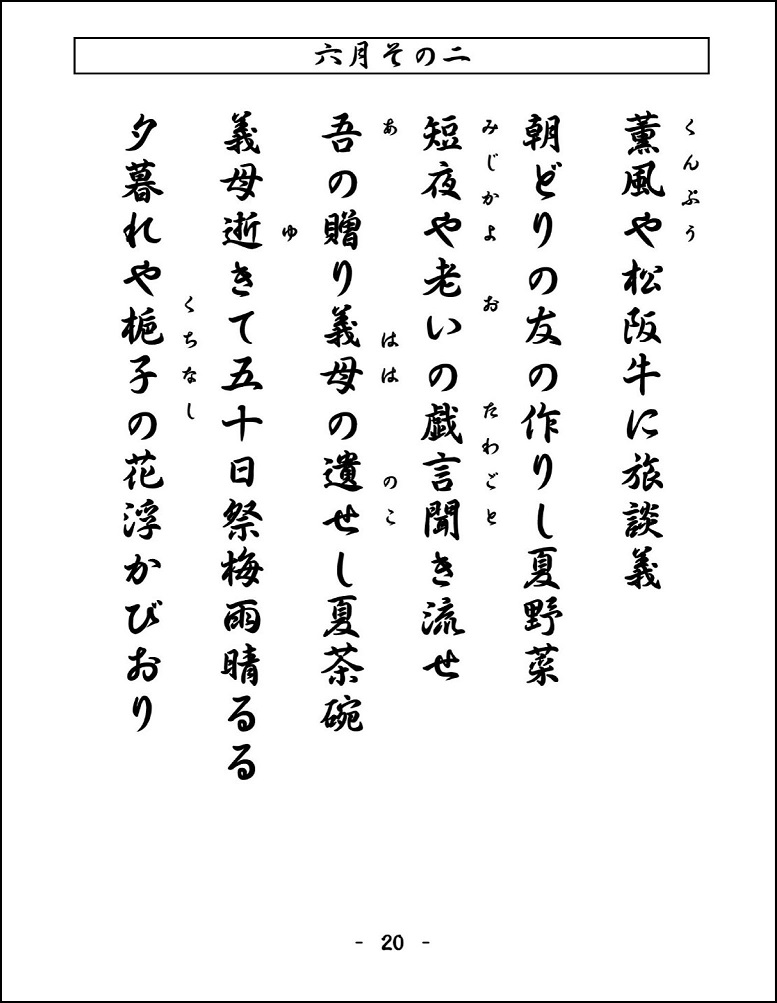 六月その二
くんぷう
薫風や松阪牛に旅談義
朝どりの友の作りし夏野菜
みじかよ お たわごと
短夜や老いの戯言聞き流せ
あ はは のこ
吾の贈り義母の遺せし夏茶碗
ゆ
義母逝きて五十日祭梅雨晴るる
くちなし
夕暮れや梔子の花浮かびおり
- 20 -